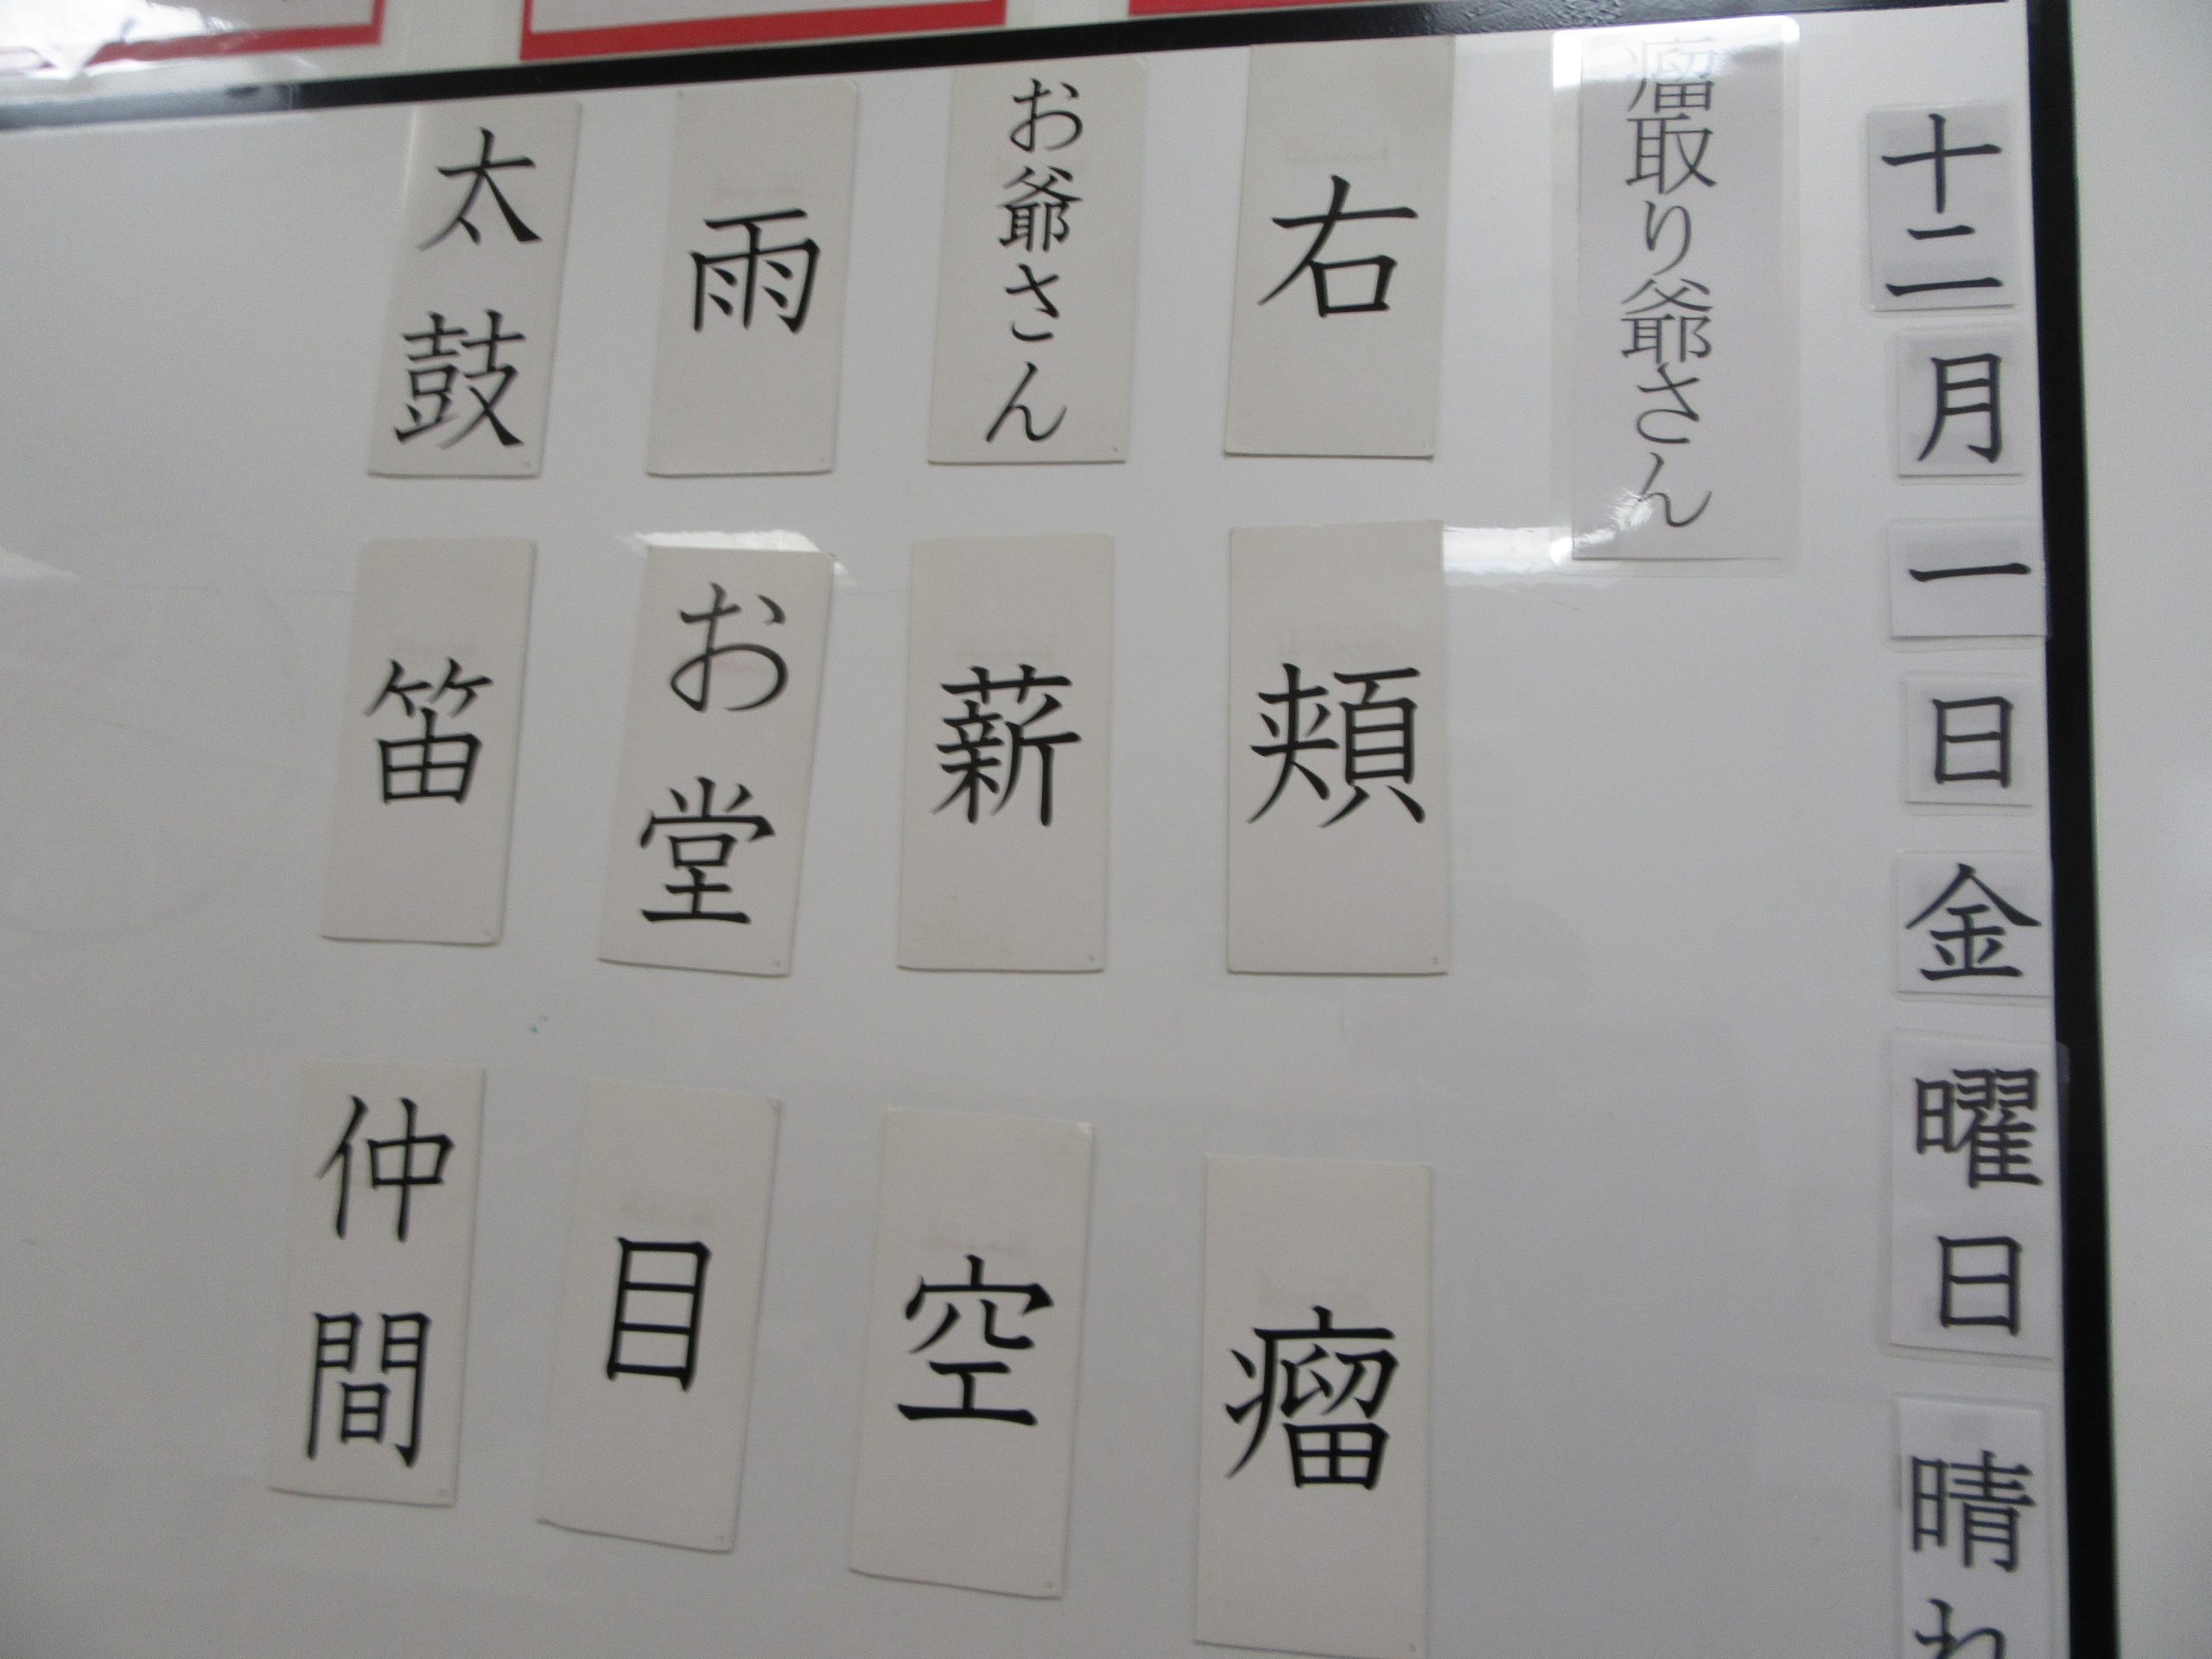 十二月一日金曜日晴れ
瘤取り爺さん
右
頬
瘤
お爺さん
薪
空
雨
お堂
目
太鼓
笛
仲間